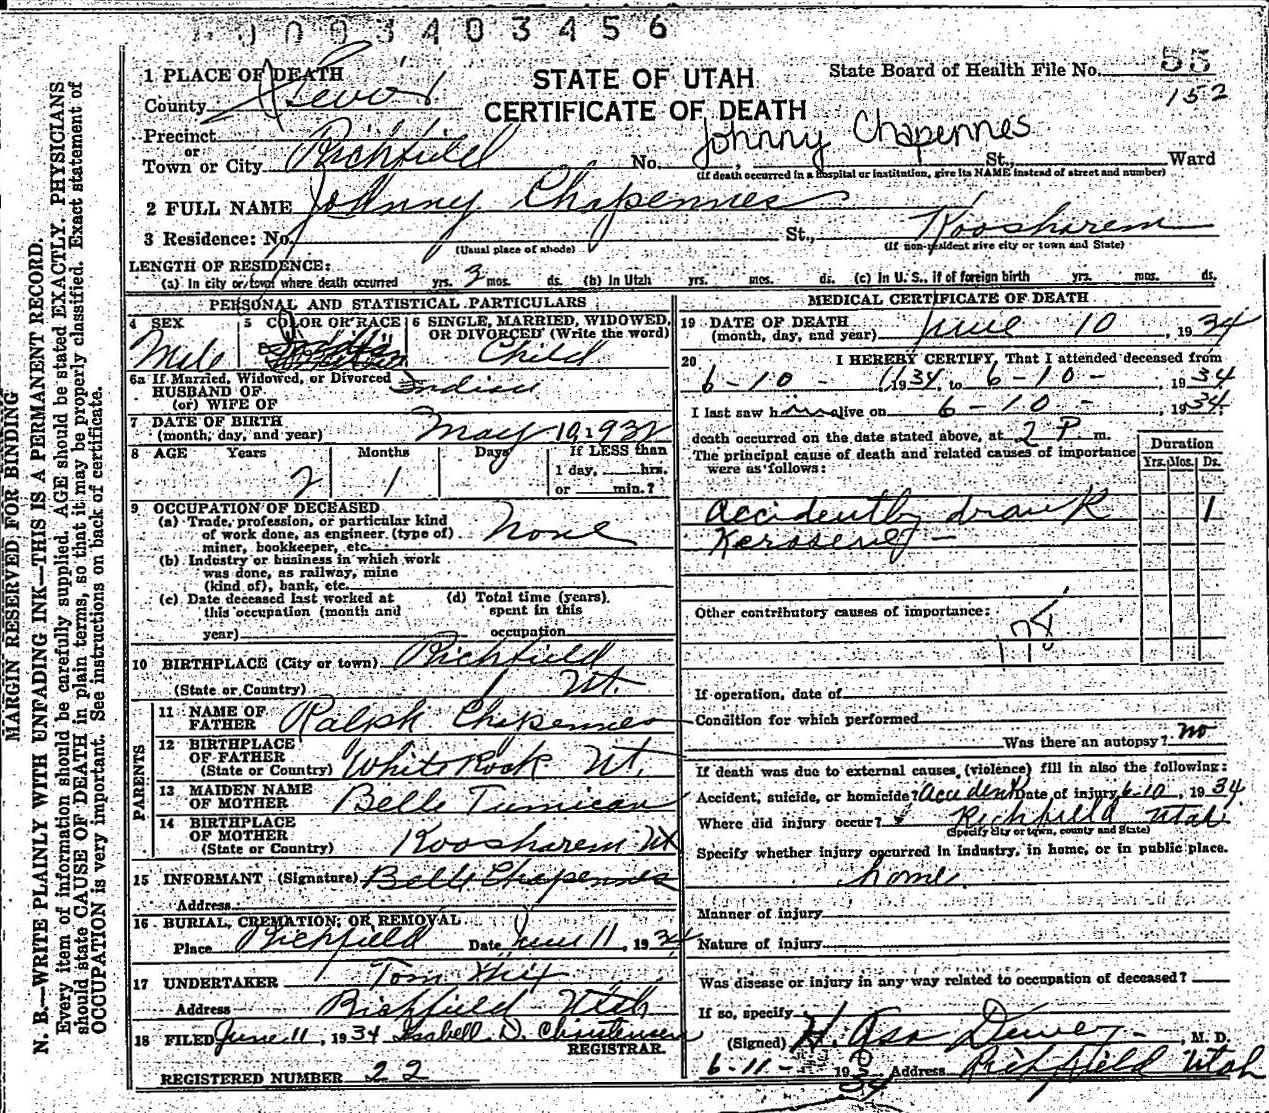 0003403456
MARGIN RESERVED FOR BINDING
N. B.—WRITE PLAINLY WITH UNFADING INK—THIS IS A PERMANENT RECORD.
Every item of information should be carefully supplied. AGE should be stated EXACTLY. PHYSICIANS
should state CAUSE OF DEATH in plain terms, so that it may be properly classified. Exact statement of
OCCUPATION is very important. See instructions on back of certificate.
STATE OF UTAH
CERTIFICATE OF DEATH
State Board of Health File No. 55
152
1 PLACE OF DEATH
County Sevier
Precinct
or
Town or City Richfield No. , St., Ward
Johnny Chapennes
(If death occurred in a hospital or institution, give its NAME instead of street and number)
2 FULL NAME Johnny Chapennes
3 Residence: No. St., Koosharem
(Usual place of abode) (If non-resident give city or town and State)
LENGTH OF RESIDENCE:
(a) In city or town where death occurred yrs. 3 mos. ds. (b) In Utah yrs. mos. ds. (c) In U. S., if of foreign birth yrs. mos. ds.
PERSONAL AND STATISTICAL PARTICULARS
4 SEX Male
5 COLOR OR RACE Indian
6 SINGLE, MARRIED, WIDOWED, OR DIVORCED (Write the word) Child
6a If Married, Widowed, or Divorced
HUSBAND OF
(or) WIFE OF
7 DATE OF BIRTH
(month, day, and year) May 10, 1932
8 AGE Years 2 Months 1 Days If LESS than
1 day, hrs.
or min.?
9 OCCUPATION OF DECEASED
(a) Trade, profession, or particular kind
of work done, as engineer (type of)
miner, bookkeeper, etc. None
(b) Industry or business in which work
was done, as railway, mine
(kind of), bank, etc.
(c) Date deceased last worked at
this occupation (month and
year)
(d) Total time (years)
spent in this
occupation
10 BIRTHPLACE (City or town) Richfield
(State or Country) Ut.
PARENTS
11 NAME OF
FATHER Ralph Chapennes
12 BIRTHPLACE
OF FATHER
(State or Country) White Rock Ut.
13 MAIDEN NAME
OF MOTHER Belle
14 BIRTHPLACE
OF MOTHER
(State or Country) Koosharem Ut
15 INFORMANT (Signature) Belle Chapennes
Address
16 BURIAL, CREMATION, OR REMOVAL
Place Richfield Date June 11, 1934
17 UNDERTAKER Tom
Address Richfield Utah
18 FILED June 11, 1934 Isabell D. Christensen
REGISTRAR
REGISTERED NUMBER 22
MEDICAL CERTIFICATE OF DEATH
19 DATE OF DEATH
(month, day, and year) June 10, 1934
20 I HEREBY CERTIFY, That I attended deceased from
6-10-, 1934, to 6-10-, 1934
I last saw him alive on 6-10-, 1934.
death occurred on the date stated above, at 2 P. m.
The principal cause of death and related causes of importance
were as follows:
Duration
Yrs. Mos. Ds.
Accidently drank 1
Kerosene –
Other contributory causes of importance:
178
If operation, date of
Condition for which performed
Was there an autopsy? no
If death was due to external causes (violence) fill in also the following:
Accident, suicide, or homicide? Accident Date of injury 6-10, 1934
Where did injury occur? Richfield Utah
(Specify city or town, county and State)
Specify whether injury occurred in industry, in home, or in public place.
home
Manner of injury
Nature of injury
Was disease or injury in any way related to occupation of deceased?
If so, specify
(Signed) H. Asa Dewey, M. D.
6-11- 1934 Address Richfield Utah